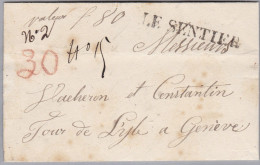 valeur f 80 LE SENTIER
N° 2 Messieurs
30
Vacheron et Constantin
Tour de Lysle a Genève